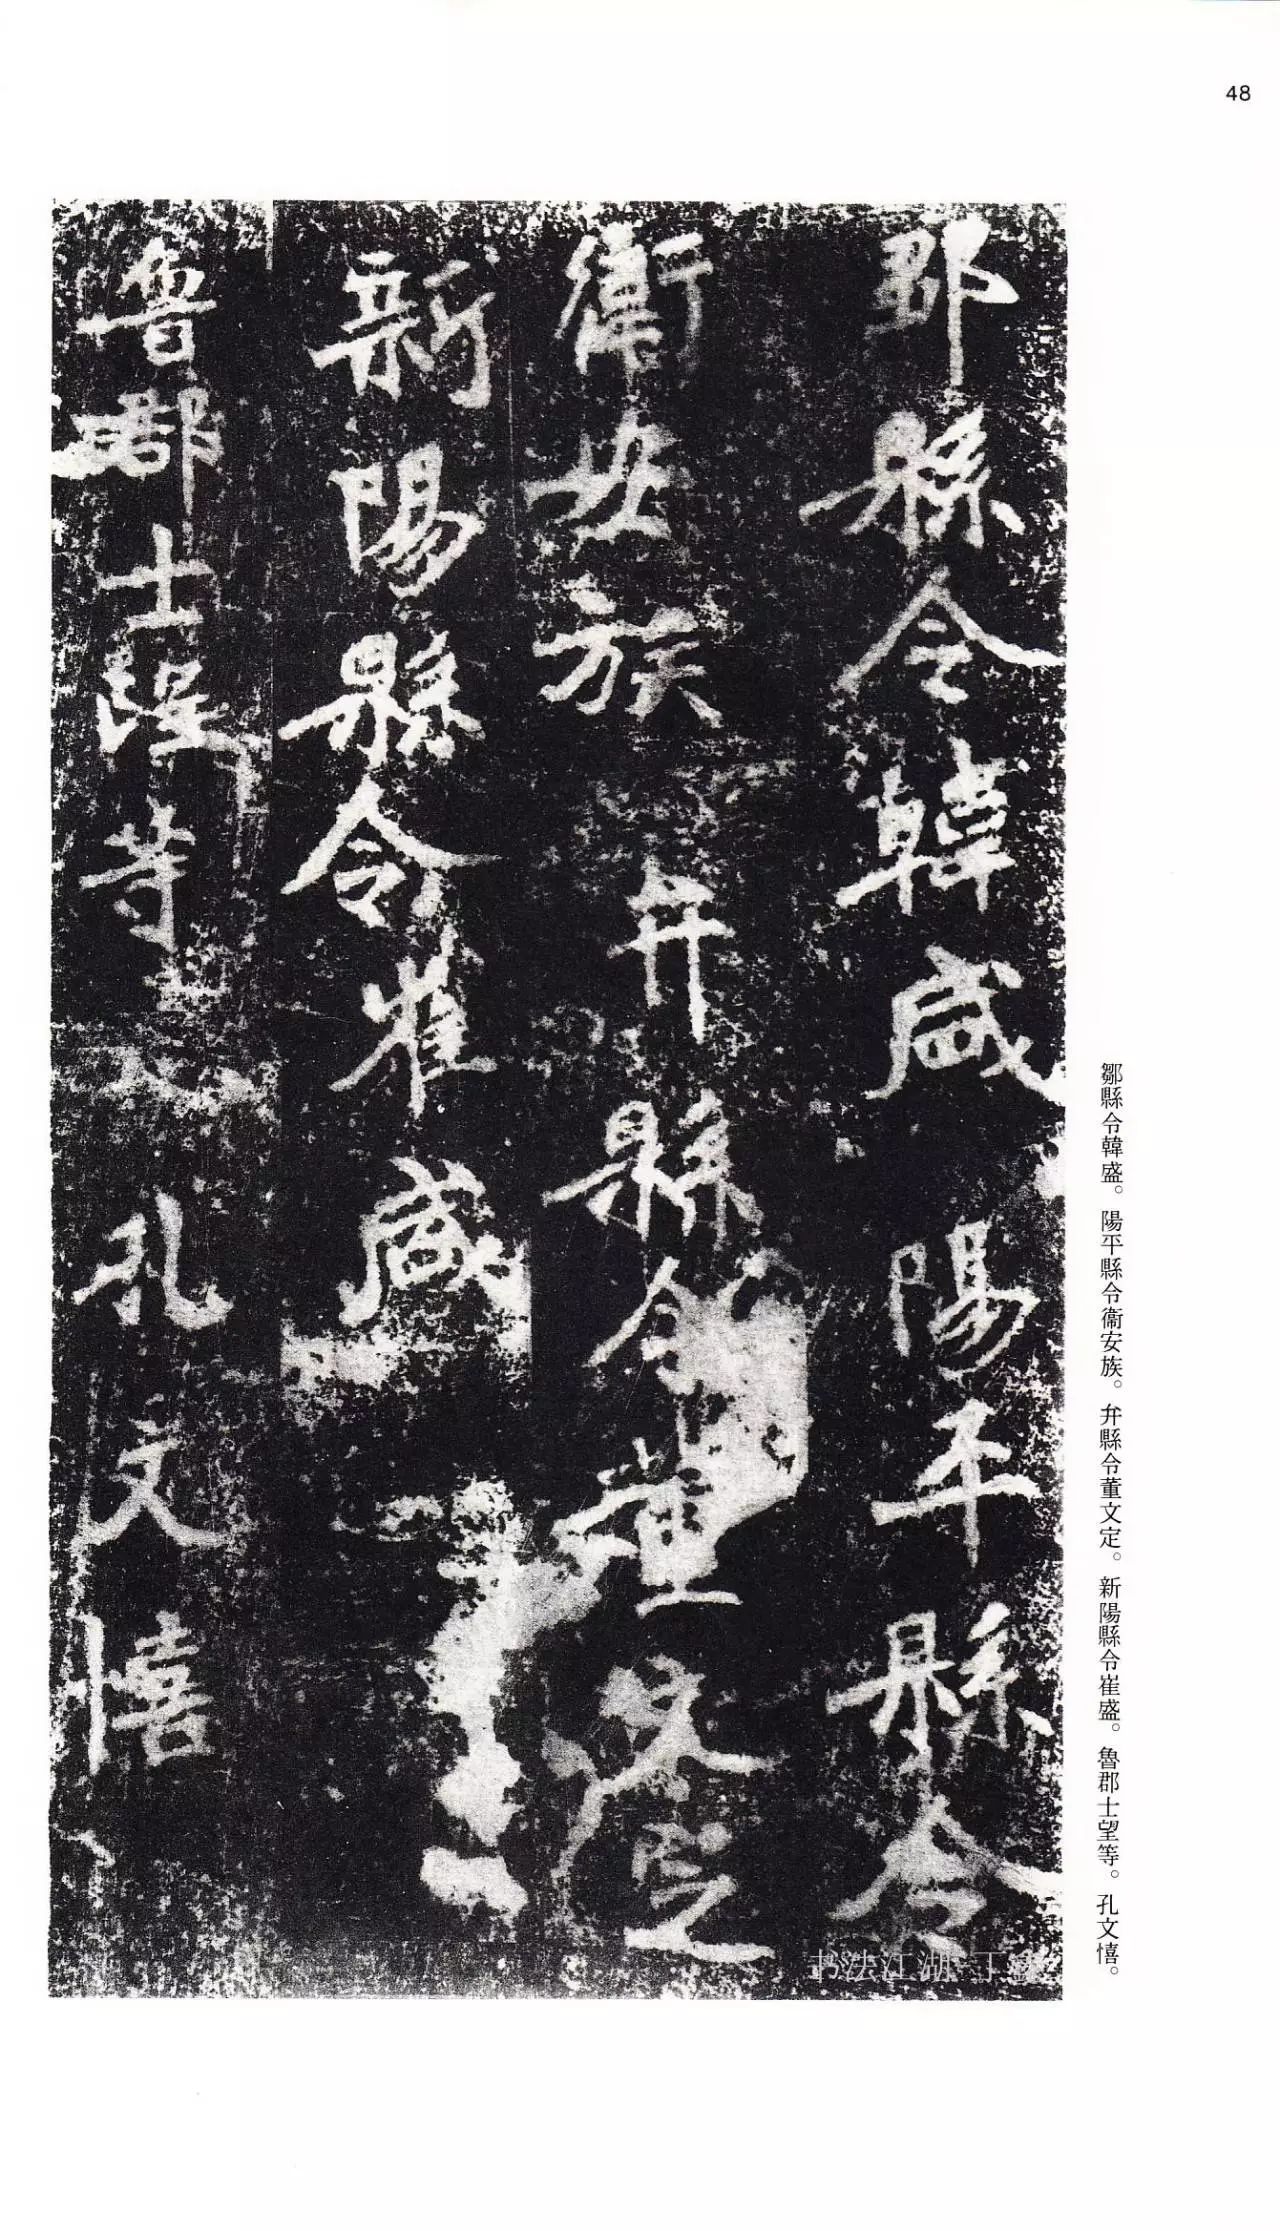 48
鄒縣令韓盛 陽平縣令
衞安族 弁縣令董文定
新陽縣令崔盛
魯郡士望等 孔文憘
鄒縣令韓盛。陽平縣令衞安族。弁縣令董文定。新陽縣令崔盛。魯郡士望等。孔文憘。
书法江湖